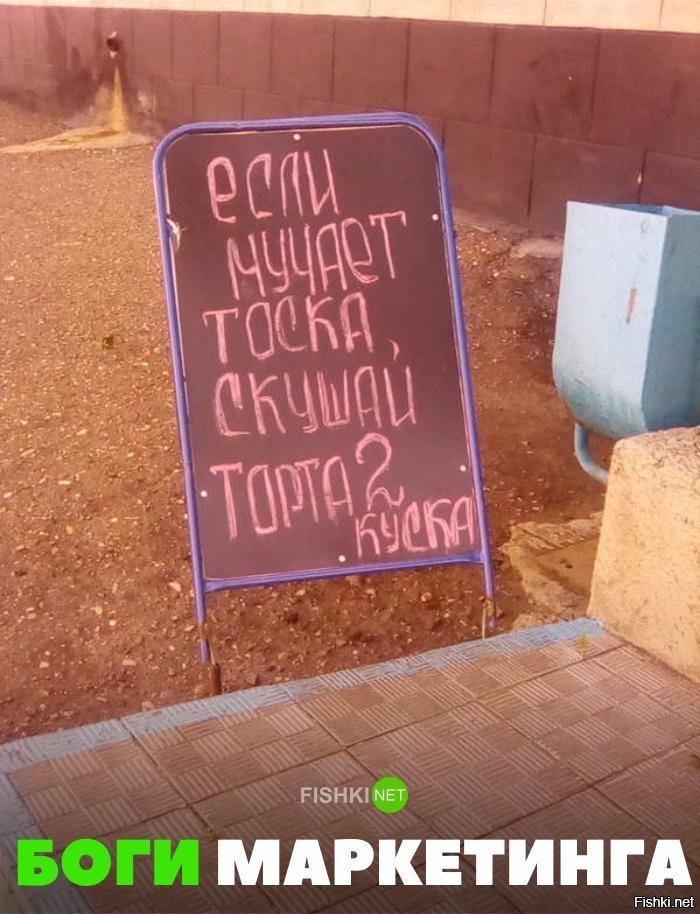 если
мучает
тоска,
скушай
торта 2
куска
FISHKI NET
БОГИ МАРКЕТИНГА
Fishki.net